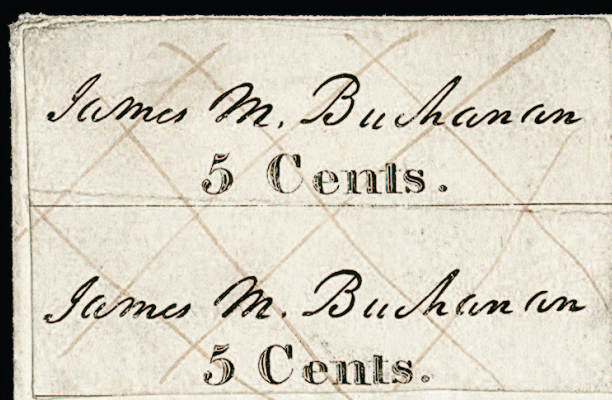 James M. Buchanan
5 Cents.
James M. Buchanan
5 Cents.